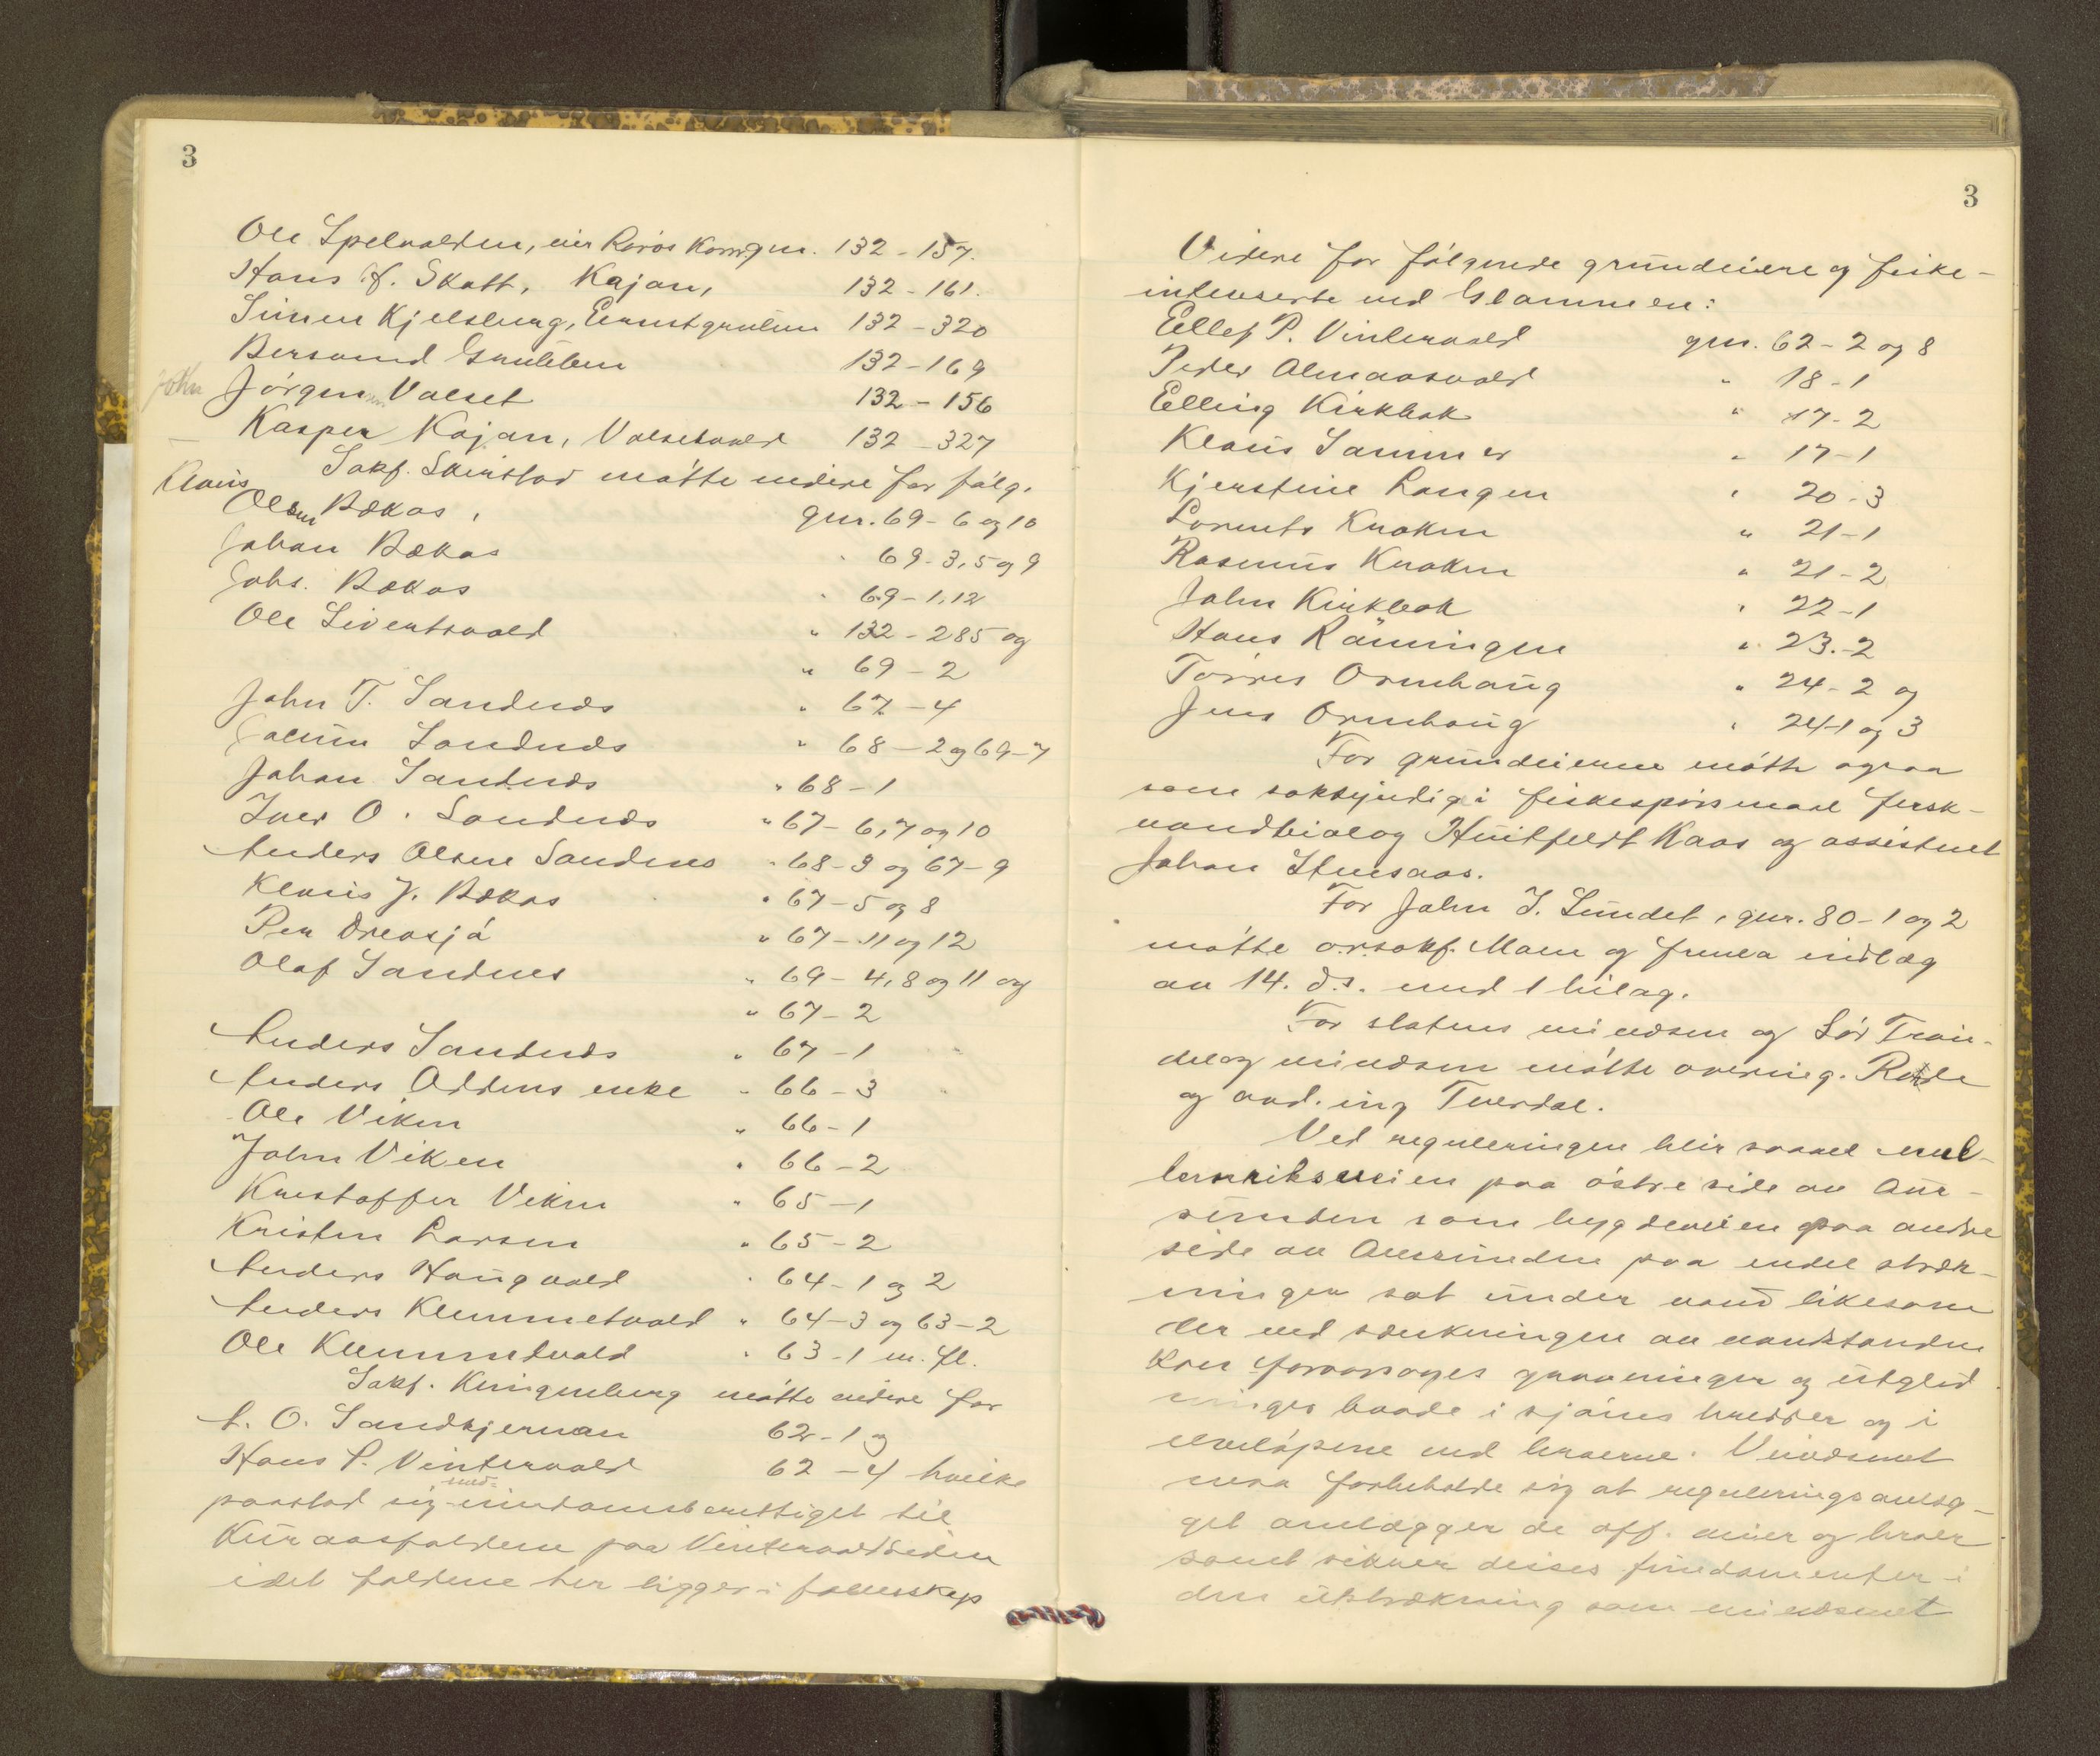 3
Ole Spelvolden, eier Røros Kom. gnr. 132 - 157.
Hans H. Skott, Kojan, 132 - 161.
Simen Kjelsberg, Ernstgruben 132 - 320
Bersvend Gruben 132 - 169
John Jörgen Valset 132 - 156
Kasper Kojan, Valsetvold 132 - 327
Sakf. Skirstad mötte videre for fölg.
Klaus Olsen Bækos, gnr. 69 - 6 og 10
Johan Bækos " 69 - 3, 5 og 9
Johs. Bækos " 69 - 1, 12
Ole Sivertsvold " 132 - 285 og
" 69 - 2
John T. Sandnes " 67 - 4
Sandnes " 68 - 2 og 69 - 7
Johan Sandnes " 68 - 1
Iver O. Sandnes " 67 - 6, 7 og 10
Anders Olsen Sandnes " 68 - 3 og 67 - 9
Klaus J. Bækos " 67 - 5 og 8
Per Dreosjö " 67 - 11 og 12
Olaf Sandnes " 69 - 4, 8 og 11 og
" 67 - 2
Anders Sandnes " 67 - 1
Anders Oddens enke " 66 - 3
Ole Viken " 66 - 1
John Viken " 66 - 2
Kristoffer Viken " 65 - 1
Kristen Larsen " 65 - 2
Anders Haugvold " 64 - 1 og 2
Anders Klemmetvold " 64 - 3 og 63 - 2
Ole Klemmetvold " 63 - 1 m. fl.
Sakf. Klingenberg mötte videre for
A. O. Sandkjernan 62 - 1 og
Hans P. Vintervold 62 - 4 hvilke
paastod sig med-eiendomsberettiget til
Kuraasfaldene paa Vintervoldsiden
idet faldene her ligger i fællesskap
3
Videre for fölgende grundeiere og fiske-
interesserte ved Glommen:
Ellef P. Vintervold gnr. 62 - 2 og 8
Peder Almaasvold " 18 - 1
Elling Kirkbak " 17 - 2
Klaus Sammer " 17 - 1
Kjerstine Langen " 20 - 3
Lorents Kroken " 21 - 1
Rasmus Kroken " 21 - 2
John Kirkbak " 22 - 1
Hans Rönningen " 23 - 2
Törres Ormhaug " 24 - 2 og
Jens Ormhaug " 24-1 og 3
For grundeierne mötte ogsaa
som saksyndig i fiskespörsmaal fersk-
vandsbiolog Huitfeldt Kaas og assistent
Johan Stensaas.
For John J. Sundet, gnr. 80 - 1 og 2
mötte o.r.sakf. Moen og fremla indlæg
av 14. d.s. med 1 bilag.
For statens veivæsen og Sör Trön-
delag veivæsen mötte overing. Rode
og avd. ing Tverdal.
Ved reguleringen blir saavel mel-
lemriksveien paa östre side av Aur-
sunden som bygdeveien paa andre
side av Aursunden paa endel stræk-
ninger sat under vand likesom
der ved sænkningen av vandstanden
kan foraarsages gravninger og utglid
ninger baade i sjöens bredder og i
elvelöpene ved broerne. Veivæsenet
maa forbeholde sig at reguleringsanlæg-
get omlægger de off. veier og broer
samt sikrer disses fundamenter i
den utstrækning som veivæsenet